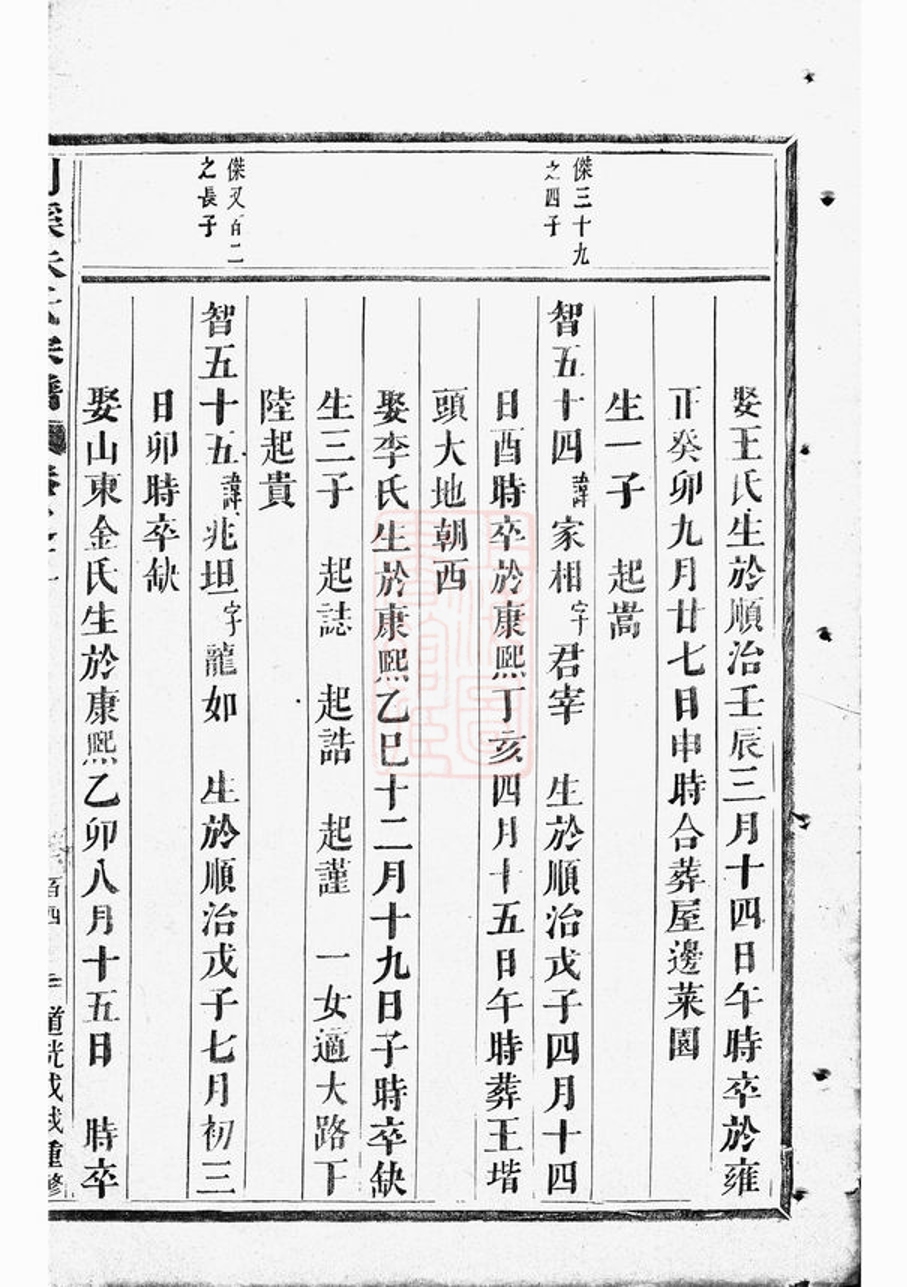 娶王氏生於順治壬辰三月十四日午時卒於雍
正癸卯九月廿七日申時合葬屋邊菜園
生一子　起嵩
傑三十九
之四子
智五十四諱家相字君宰　生於順治戊子四月十四
日酉時卒於康熙丁亥四月十五日午時葬王堦
頭大地朝西
娶李氏生於康熙乙巳十二月十九日子時卒缺
生三子　起誌　起誥　起謹　一女適大路下
陸起貴
傑又百二
之長子
智五十五諱兆坦字龍如　生於順治戊子七月初三
日卯時卒缺
娶山東金氏生於康熙乙卯八月十五日　時卒
氏宗譜　卷之
百四
道光戊戌重修